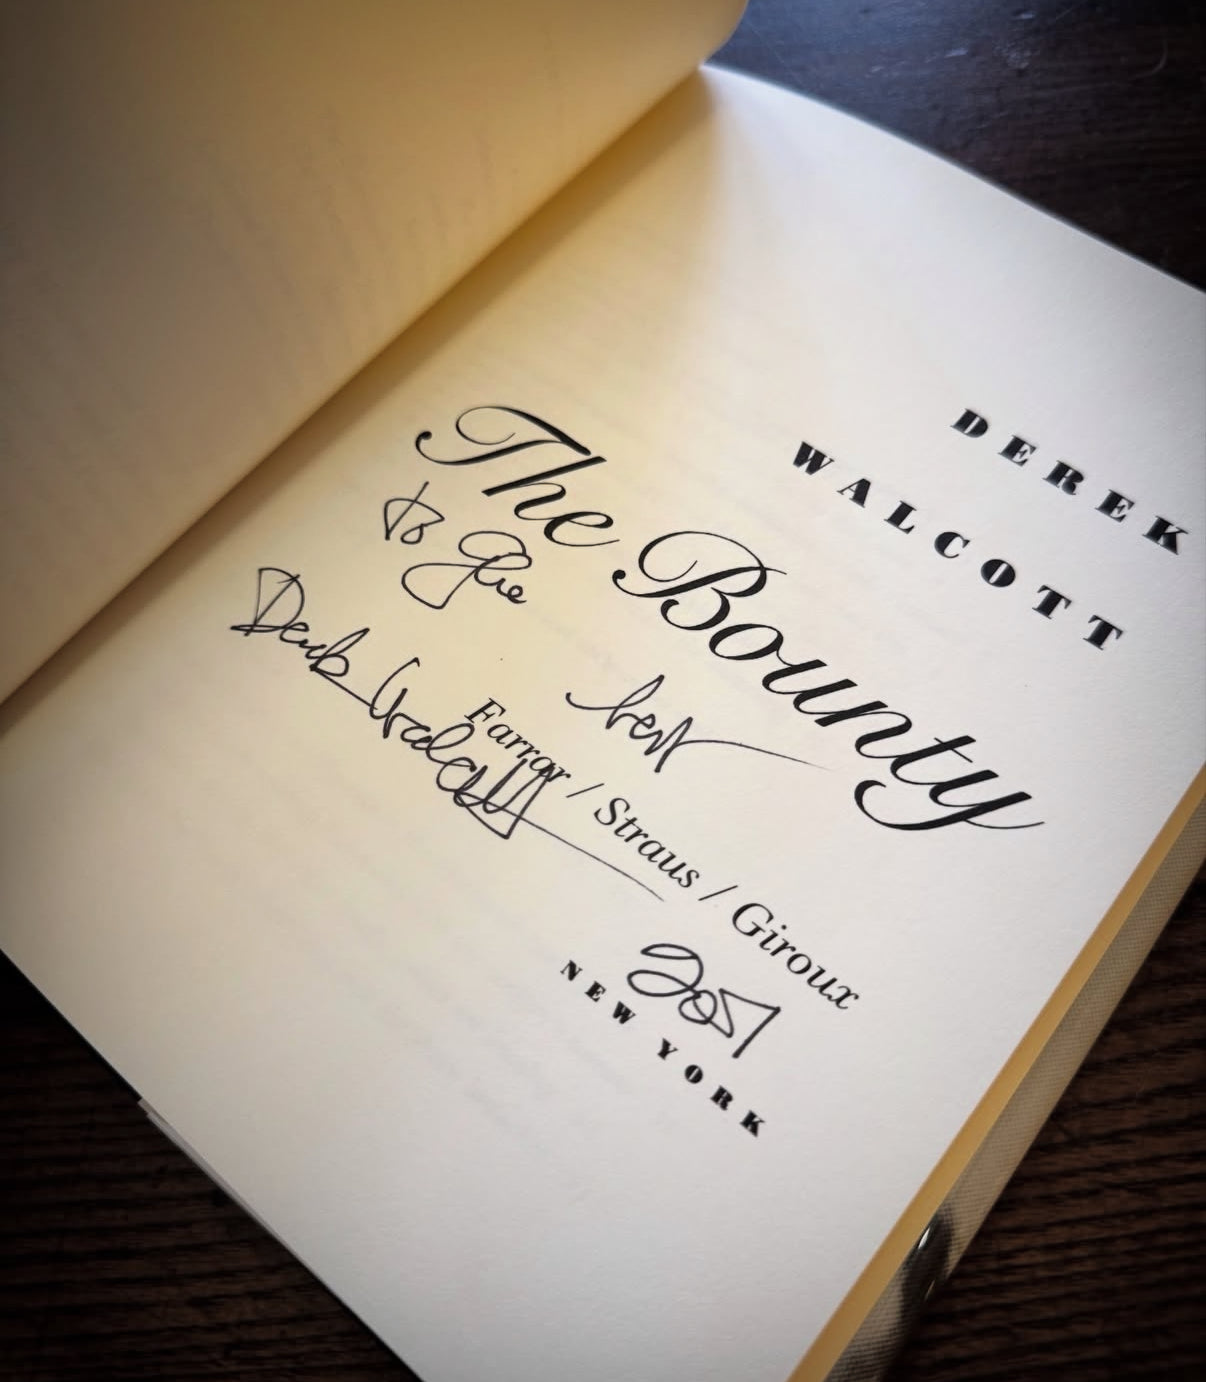 DEREK
WALCOTT
The Bounty
to
best
Derek Walcott
Farrar / Straus / Giroux
NEW YORK